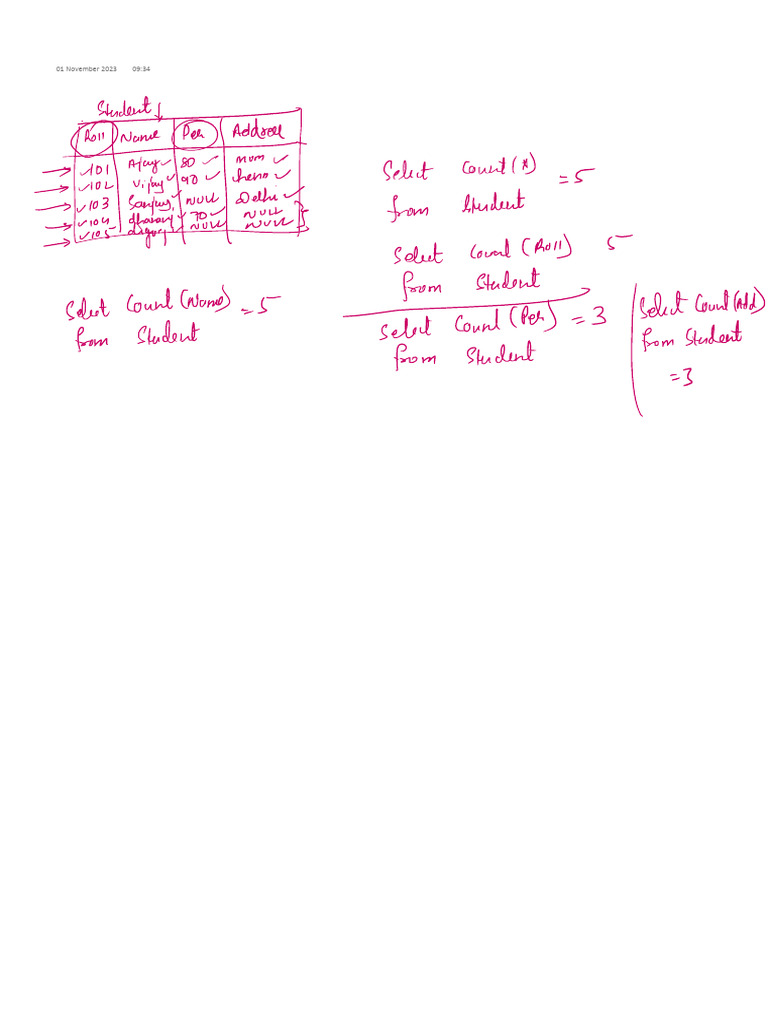 01 November 2023 09:34
Student
Roll Name Per Address
101 Ajay 80 mum
102 Vijay 90
103 Sanjay NULL Delhi
104 70 NULL
105 NULL NULL
Select Count(Name) = 5
from Student
Select Count(*) = 5
from Student
Select Count(Roll) 5
from Student
Select Count(Per) = 3
from Student
Select Count(Add)
from Student
= 3